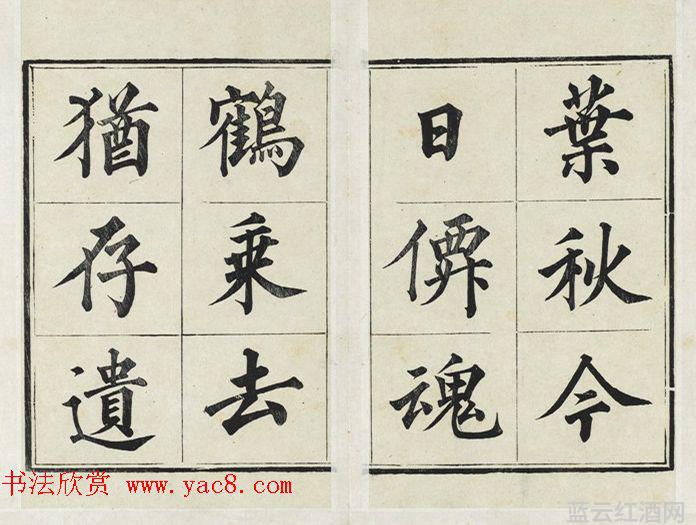 葉秋今
日僊魂
鶴乗去
猶存遺
书法欣赏 www.yac8.com
蓝云红酒网